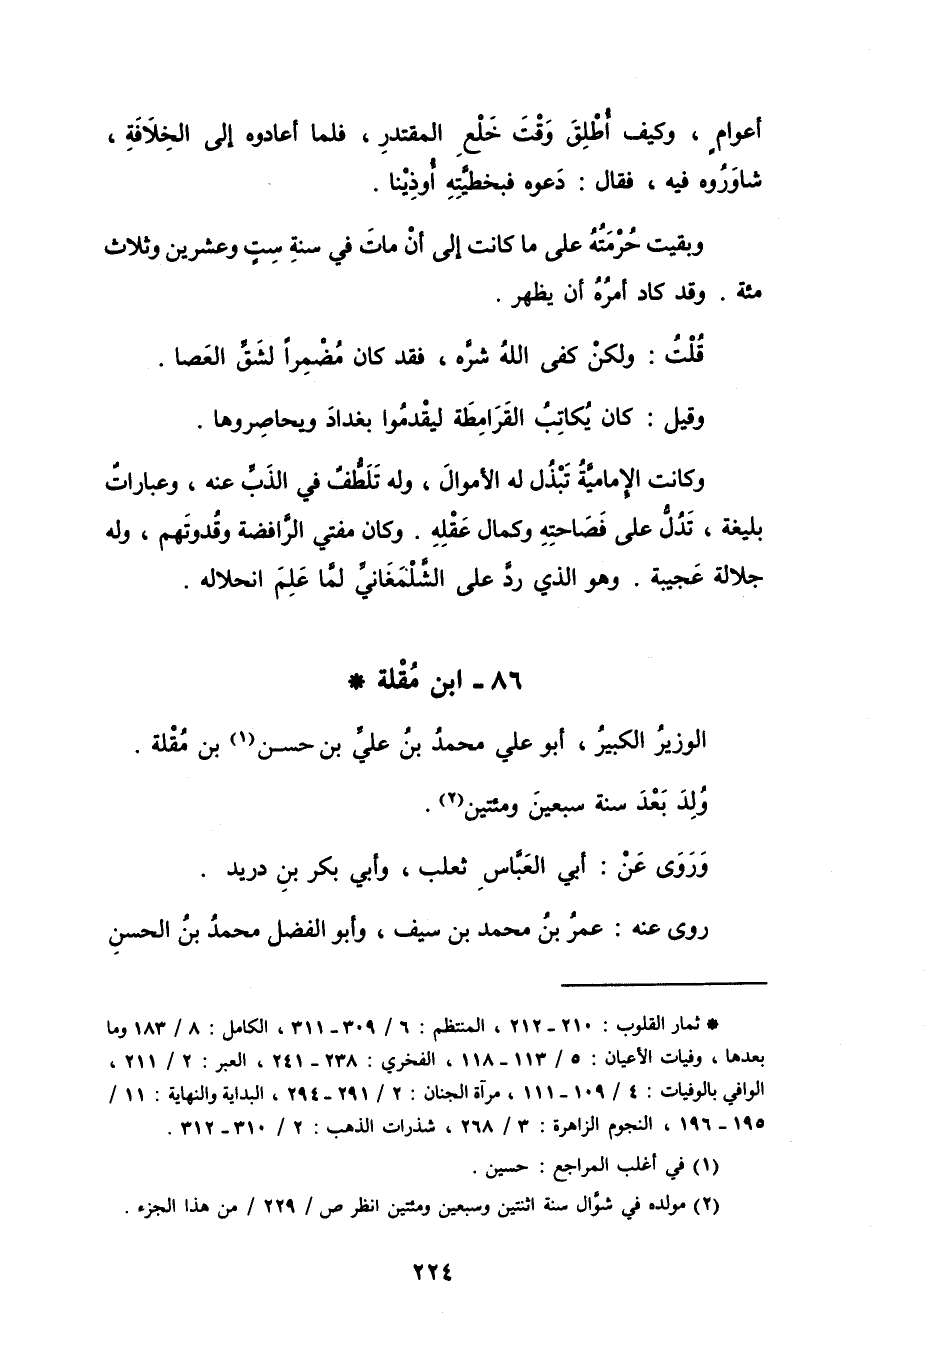 أعوامٍ ، وكيف أُطْلِقَ وَقْتَ خَلْعِ المقتدرِ ، فلما أعادوه إلى الخِلَافَةِ ،
شاوَرُوه فيه ، فقال : دَعوه فبخطيَّتِهِ أُوذِيْنا .
وبقيت حُرْمَتُهُ على ما كانت إلى أنْ ماتَ في سنةِ سِتٍ وعشرين وثلاث
مئة . وقد كاد أمرُهُ أن يظهر .
قُلْتُ : ولكنْ كفى اللهُ شرَّه ، فقد كان مُضْمِراً لشَقِّ العَصا .
وقيل : كان يُكاتِبُ القَرَامِطَة ليقْدمُوا بغدادَ ويحاصِروها .
وكانت الإماميَّةُ تَبْذُل له الأموالَ ، وله تَلَطُّفٌ في الذَبِّ عنه ، وعباراتٌ
بليغة ، تَدُلُّ على فَصَاحتِهِ وكمال عَقْلِهِ . وكان مفتي الرَّافضة وقُدوتَهم ، وله
جلالة عَجيبة . وهو الذي ردَّ على الشَّلْمَغَانيِّ لمَّا عَلِمَ انحلاله .
٨٦ - ابن مُقْلة *
الوزيرُ الكبيرُ ، أبو علي محمدُ بنُ عليِّ بن حسن(١) بن مُقْلة .
وُلِدَ بَعْدَ سنة سبعينَ ومئتين(٢) .
وَرَوَى عَنْ : أبي العَبَّاسِ ثعلب ، وأبي بكر بنِ دريد .
روى عنه : عمرُ بنُ محمد بن سيف ، وأبو الفضل محمدُ بنُ الحسنِ
* ثمار القلوب : ٢١٠ - ٢١٢ ، المنتظم : ٦ / ٣٠٩ - ٣١١ ، الكامل : ٨ / ١٨٣ وما
بعدها ، وفيات الأعيان : ٥ / ١١٣ - ١١٨ ، الفخري : ٢٣٨ - ٢٤١ ، العبر : ٢ / ٢١١ ،
الوافي بالوفيات : ٤ / ١٠٩ - ١١١ ، مرآة الجنان : ٢ / ٢٩١ - ٢٩٤ ، البداية والنهاية : ١١ /
١٩٥ - ١٩٦ ، النجوم الزاهرة : ٣ / ٢٦٨ ، شذرات الذهب : ٢ / ٣١٠ - ٣١٢ .
(١) في أغلب المراجع : حسين .
(٢) مولده في شوَّال سنة اثنتين وسبعين ومئتين انظر ص / ٢٢٩ / من هذا الجزء .
٢٢٤